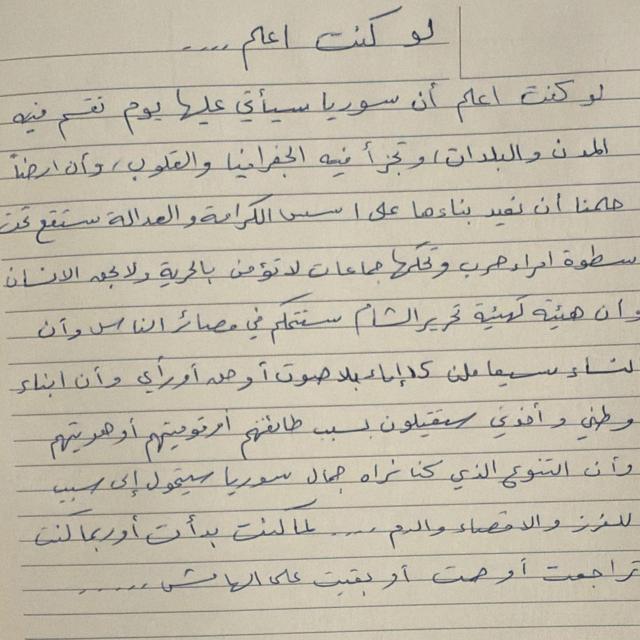 لو كنت اعلم ....
لو كنت اعلم أن سوريا سيأتي عليها يوم تقسم فيه
المدن والبلدات، وتجزأ فيه الجغرافيا والقلوب، وأن ارضاً
حلمنا أن نعيد بناءها على اسس الكرامة والعدالة ستقع تحت
سطوة امراء حرب وتحكمها جماعات لا تؤمن بالحرية ولا بحق الانسان
وأن هيئة كهيئة تحرير الشام ستتحكم في مصائر الناس وأن
النساء سيعاملن كإماء بلا صوت أو حق أو رأي وأن ابناء
وطني وأخوتي سيقتلون بسبب طائفتهم أو قوميتهم أو هويتهم
وأن التنوع الذي كنا نراه جمال سوريا سيتحول إلى سبب
للفرز والاقصاء والدم .... لما كنت بدأت أو ربما كنت
تراجعت أو صمت أو بقيت على الهامش ......